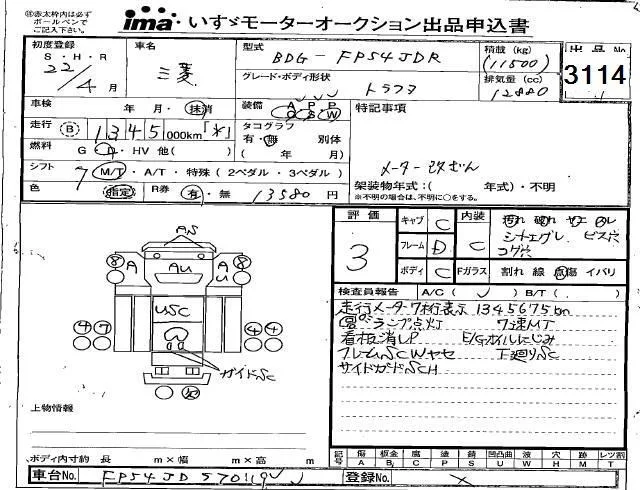 ㊟赤太枠内は必ず
ボールペンで
ご記入下さい。
ima・いすゞモーターオークション出品申込書
初度登録
S・H・R
22/4月
車名
三菱
型式
BDG-FP54JDR
グレード・ボディ形状
トラクタ
積載(kg)
(11500)
排気量(cc)
12880
出品No
3114
車検 年・月・抹消
装備 A・P・P
O・S・W
特記事項
メーター改ざん
走行 B 1345 000km「*」
タコグラフ
有・無 別体
( 年 月)
燃料 G・D・HV 他( )
シフト 7 M/T・A/T・特殊(2ペダル・3ペダル)
架装物年式:( 年式)・不明
※不明の場合は、不明に○をする。
色 指定 R券 有・無 13580円
評価
3
キャブ C
フレーム D
ボディ C
内装
C
汚れ 破れ
シートエグレ ビス穴
コゲ穴
Fガラス 割れ 線 点傷 イバリ
検査員報告 A/C( ) B/T( )
走行メーター7桁表示 1345675km
ランプ点灯 7速MT
看板消しP E/Gオイルにじみ
フレームSCWヤセ 下廻りSC
サイドガードSCH
AS
8 A AU A U 8
USC
4 7 4 4
ガイドSC
上物情報
ボディ内寸約 長 m×幅 m×高 m
記号 傷 A 板金 B 腐 C 塗 P 錆 S 凹凸曲 U 波 W 穴 H 跡 M レツ割 T
車台No. FP54JD 570119
登録No. ×